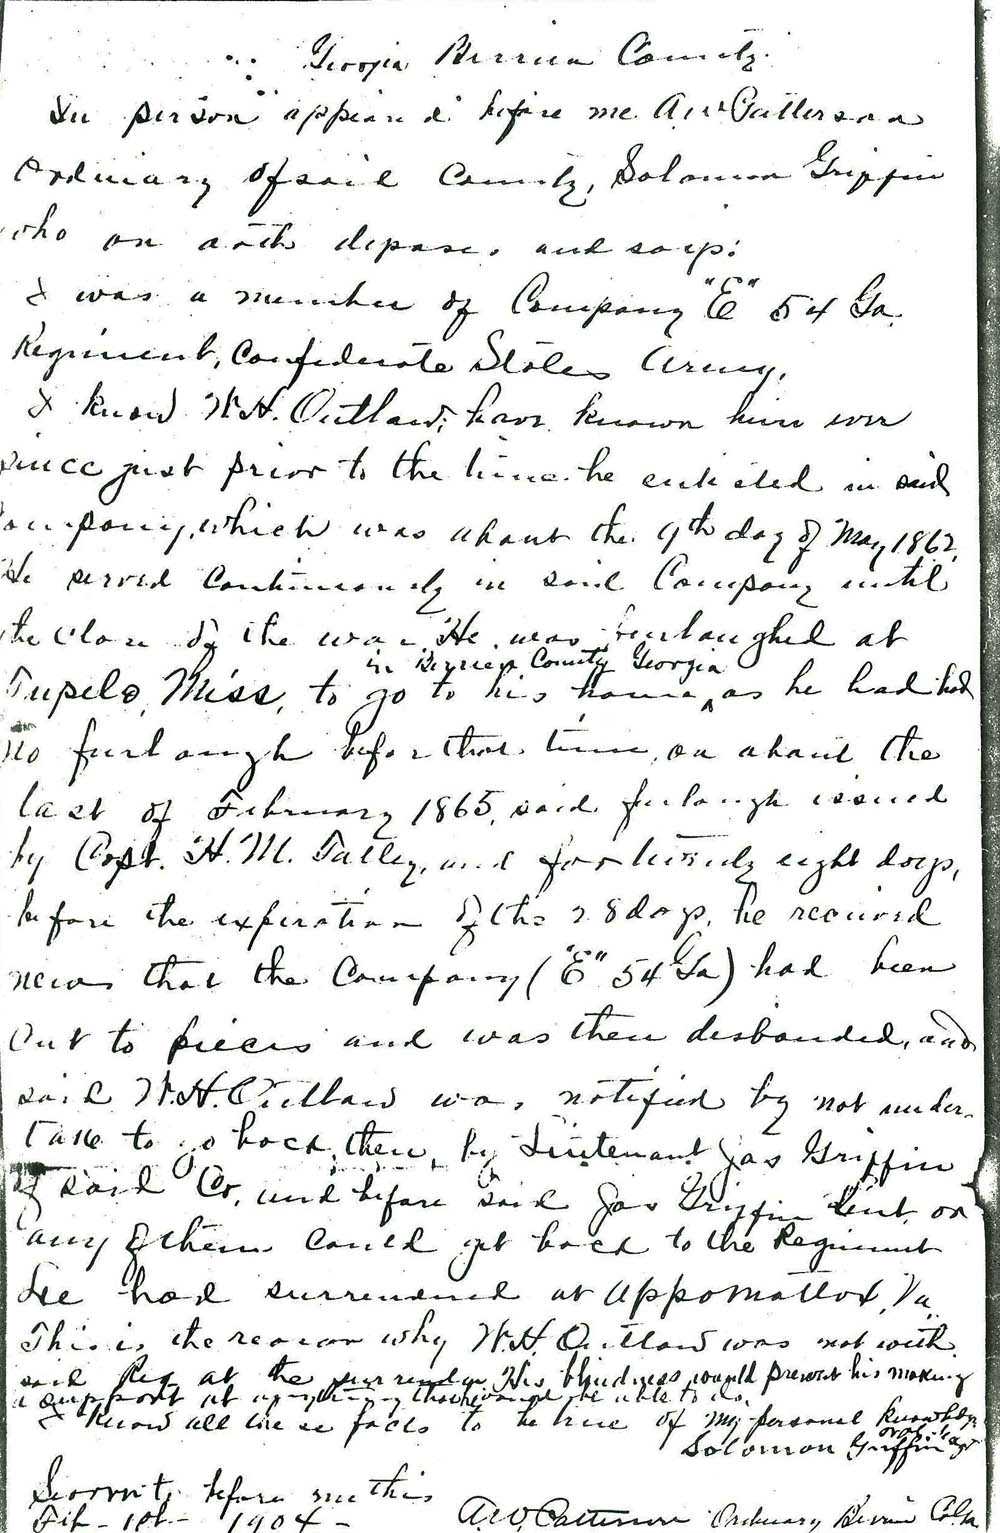 Georgia Berrien County.
In person appeared before me A.W. Patterson
Ordinary of said County, Solomon Griffin
who on oath deposes and says:
I was a member of Company "E" 54 Ga.
Regiment, Confederate States Army.
I know W.H. Outlaw; have known him ever
since just prior to the time he enlisted in said
Company, which was about the 9th day of May 1862,
He served continuously in said Company until
the close of the war. He was furloughed at
in Berrien County Georgia
Tupelo, Miss, to go to his home, as he had had
no furlough before that time, on about the
last of February 1865, said furlough issued
by Capt. H. M. Talley, and for twenty eight days,
before the expiration of the 28 days, he received
news that the Company ("E" 54 Ga) had been
Cut to pieces and was then disbanded, and
said W.H. Outlaw was notified by not under-
take to go back then, by Lieutenant Jas Griffin
of said Co, and before said Jas Griffin Lieut. or
any of them could get back to the Regiment
Lee had surrendered at Appomattox, Va.
This is the reason why W.H. Outlaw was not with
said Reg at the surrender His blindness would prevent his making
a support at anything
I know all these facts to be true of my personal knowledge
Solomon Griffin
Sworn to before me this
Feb - 1st - 1904 -
A.W. Patterson Ordinary Berrien Co Ga